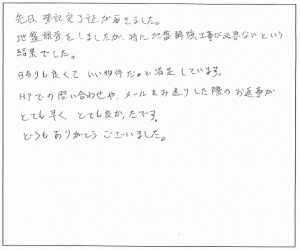 先日、登記完了証が届きました。
地盤調査をしましたが、特に地盤補強工事は必要ないという
結果でした。
日当りも良くていい物件だと満足しています。
HPでの問い合わせや、メールをお送りした際のお返事が
とても早くとても良かったです。
どうもありがとうございました。